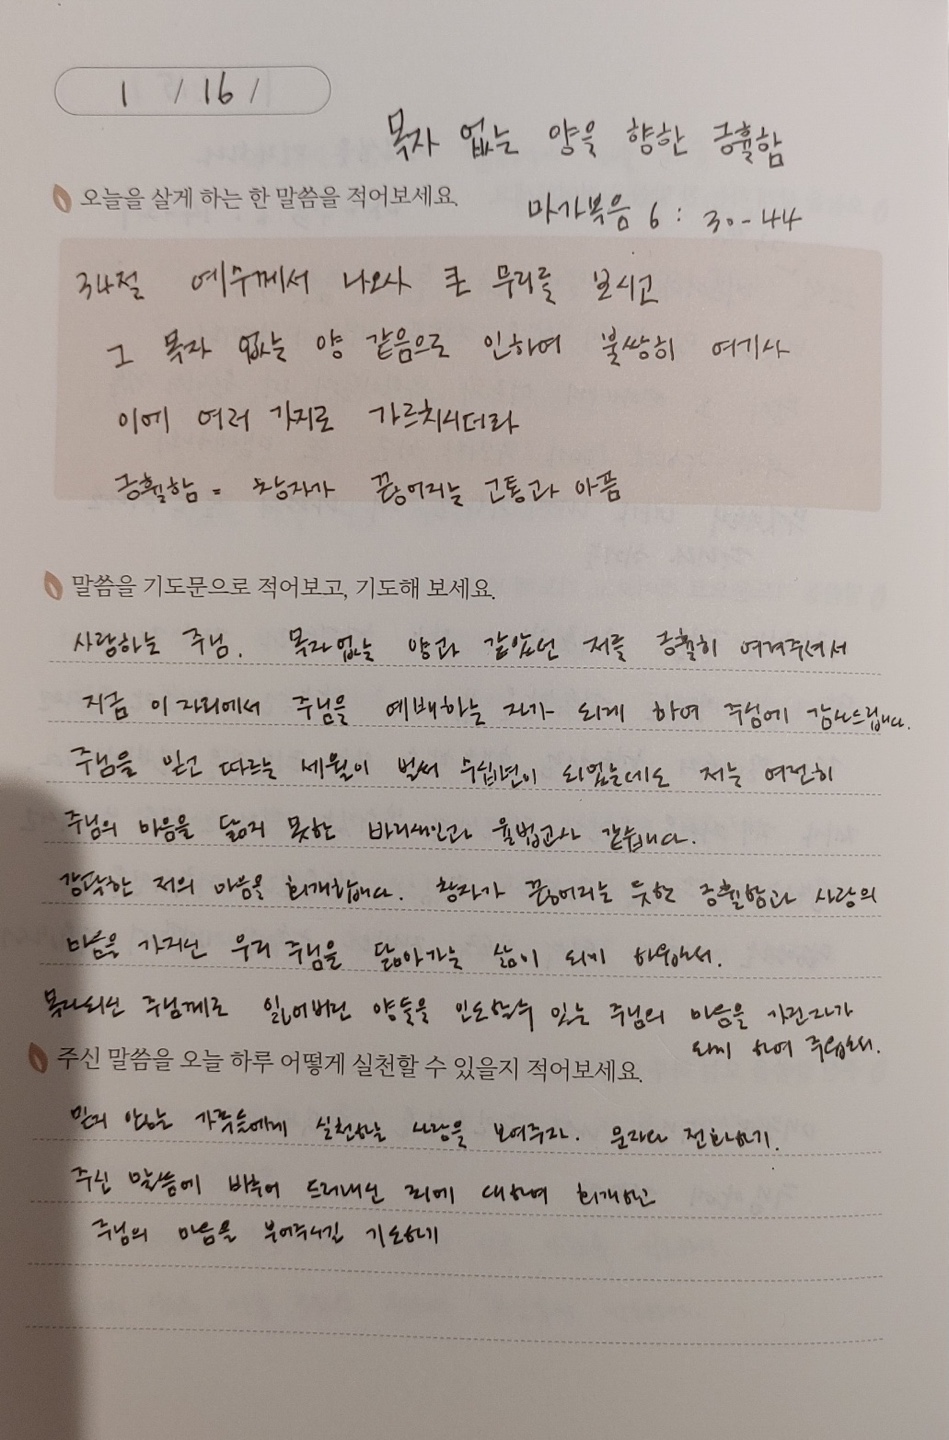 1 / 16 /
목자 없는 양을 향한 긍휼함
오늘을 살게 하는 한 말씀을 적어보세요.
마가복음 6 : 30-44
34절 예수께서 나오사 큰 무리를 보시고
그 목자 없는 양 같음으로 인하여 불쌍히 여기사
이에 여러 가지로 가르치시더라
긍휼함 = 창자가 끊어지는 고통과 아픔
말씀을 기도문으로 적어보고, 기도해 보세요.
사랑하는 주님. 목자없는 양과 같았던 저를 긍휼히 여겨주셔서
지금 이 자리에서 주님을 예배하는 자가 되게 하여 주심에 감사드립니다.
주님을 믿고 따르는 세월이 벌써 수십년이 되었는데도 저는 여전히
주님의 마음을 닮지 못한 바리새인과 율법교사 같습니다.
강퍅한 저의 마음을 회개합니다. 창자가 끊어지는 듯한 긍휼함과 사랑의
마음을 가지신 우리 주님을 닮아가는 삶이 되기 하옵소서.
목자되신 주님께로 잃어버린 양들을 인도할수 있는 주님의 마음을 가진자가
되게 하여 주옵소서.
주신 말씀을 오늘 하루 어떻게 실천할 수 있을지 적어보세요.
믿지 않는 가족들에게 실천하는 사랑을 보여주자. 문자나 전화하기.
주신 말씀에 비추어 드러내신 죄에 대하여 회개하고
주님의 마음을 부어주시길 기도하기